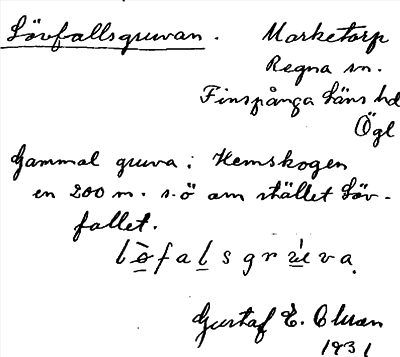 Lövfallsgruvan. Marketorp
Regna sn.
Finspånga läns hd
Ögl
Gammal gruva i Hemskogen
en 200 m. s.ö om stället Löv-
fallet.
lò̤falsgrú̱va.
Gustaf E.
1931